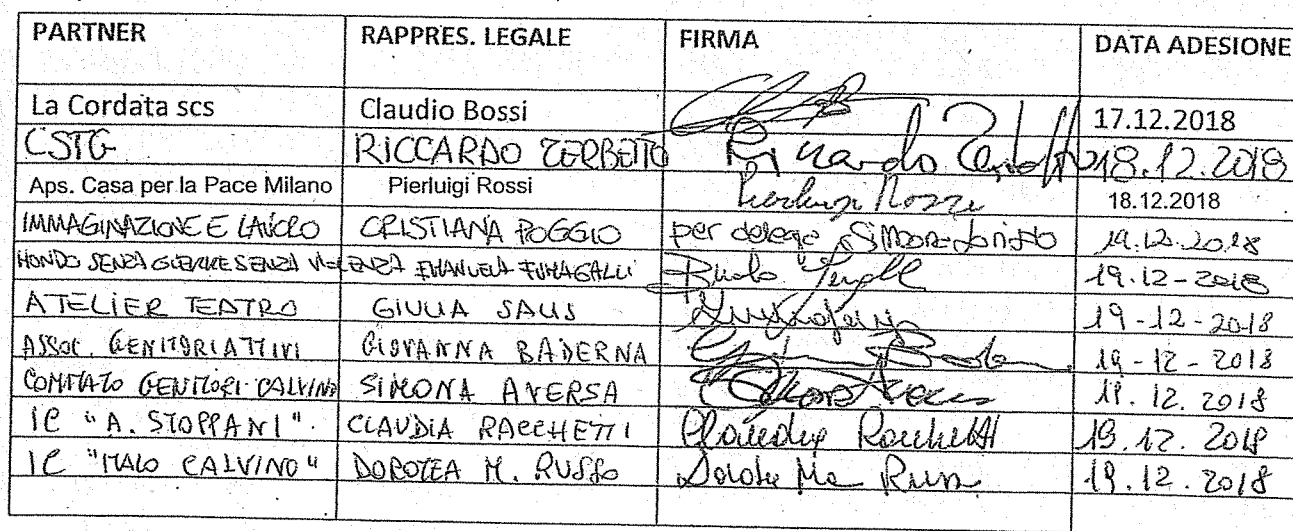 PARTNER RAPPRES. LEGALE FIRMA DATA ADESIONE
La Cordata scs Claudio Bossi 17.12.2018
CSTG RICCARDO ZERBETTO Riccardo Zerbetto 18.12.2018
Aps. Casa per la Pace Milano Pierluigi Rossi Pierluigi Rossi 18.12.2018
IMMAGINAZIONE E LAVORO CRISTIANA POGGIO per delega 19.12.2018
MONDO SENZA GUERRE E SENZA VIOLENZA EMANUELA FUMAGALLI 19.12-2018
ATELIER TEATRO GIULIA SALIS 19-12-2018
ASSOC. GENITORIATTIVI GIOVANNA BADERNA 19-12-2018
COMITATO GENITORI CALVINO SIMONA AVERSA 19.12.2018
IC "A. STOPPANI" CLAUDIA RACCHETTI Claudia Racchetti 19.12.2018
IC "ITALO CALVINO" DOROTEA M. RUSSO 19.12.2018